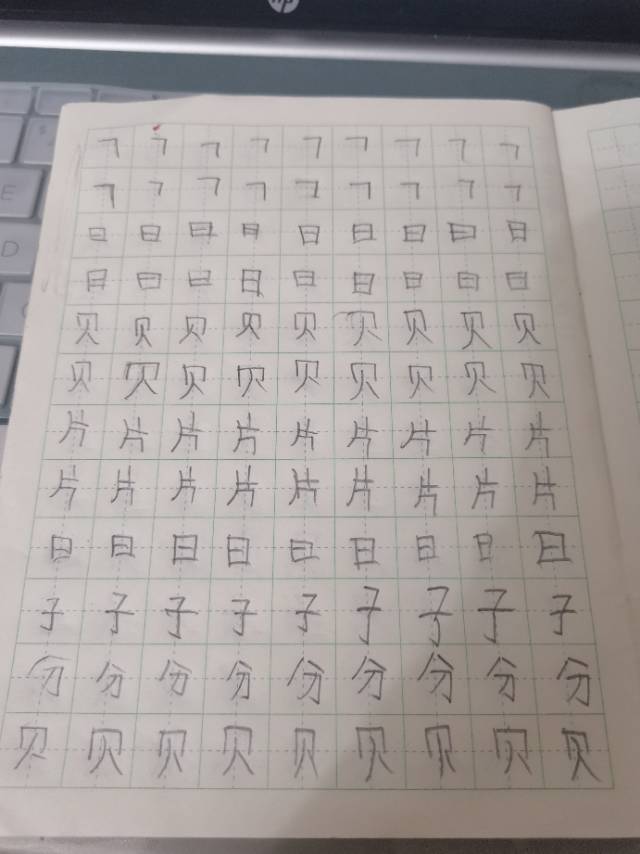 hp
E
D
㇕ ㇕ ㇕ ㇕ ㇕ ㇕ ㇕ ㇕ ㇕
㇕ ㇕ ㇕ ㇕ ㇕ ㇕ ㇕ ㇕ ㇕
日 日 日 日 日 日 日 日 日
日 日 日 日 日 日 日 日 日
贝 贝 贝 贝 贝 贝 贝 贝 贝
贝 贝 贝 贝 贝 贝 贝 贝 贝
片 片 片 片 片 片 片 片 片
片 片 片 片 片 片 片 片 片
日 日 日 日 日 日 日 日 日
子 子 子 子 子 子 子 子 子
分 分 分 分 分 分 分 分 分
贝 贝 贝 贝 贝 贝 贝 贝 贝